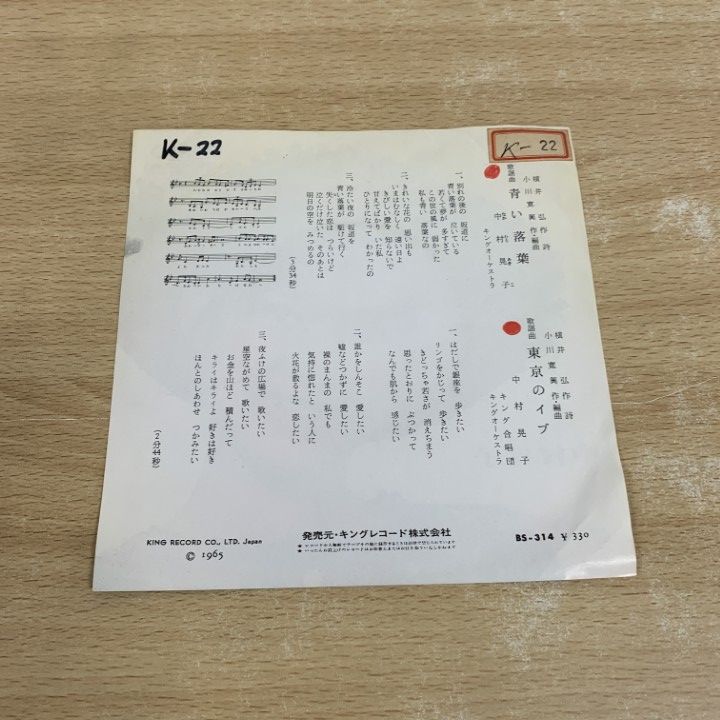 K-22
K-22
歌謡曲
青い落葉
横井 弘 作詩
小川寛興 作・編曲
中村晃子
キングオーケストラ
一、別れの後の 坂道に
青い落葉が 泣いている
若くて夢が 多すぎて
この世の風に 弱かった
私も青い 落葉なの
二、きれいな花の 思い出も
いまはむなしく 遠い日よ
きびしい愛を 知らないで
甘えてばかり いた私
ひとりになって わかったの
三、冷たい夜の 坂道を
青い落葉が 駆けて行く
失くした恋は つらいけど
泣くだけ泣いた そのあとは
明日の空を みつめるの
歌謡曲
東京のイブ
横井 弘 作詩
小川寛興 作・編曲
中村晃子
キング合唱団
キングオーケストラ
一、はだしで銀座を 歩きたい
リンゴをかじって 歩きたい
きどっちゃ若さが 消えちまう
思ったとおりに ぶつかって
なんでも肌から 感じたい
二、誰かをしんそこ 愛したい
嘘などつかずに 愛したい
裸のまんまの 私でも
気持に惚れたと いう人に
火花が散るよな 恋したい
三、夜ふけの広場で 歌いたい
星空ながめて 歌いたい
お金を山ほど 積んだって
キライはキライよ 好きは好き
ほんとのしあわせ つかみたい
(2分44秒)
KING RECORD CO., LTD. Japan
© 1965
発売元・キングレコード株式会社
BS-314 ¥330